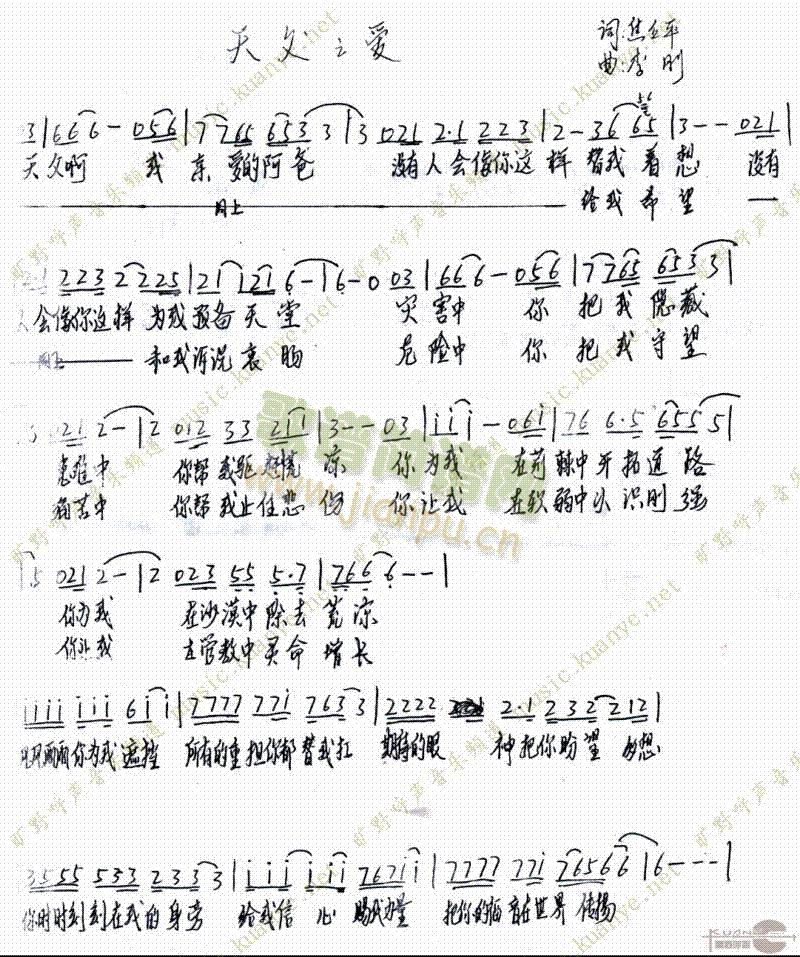 天父之爱
词:焦立平
曲:李刚
03|666-056|7765 6533|3 021 2·1 223|2-36 65|3--021|
天父啊 我亲爱的阿爸 没有人会像你这样替我着想 没有
同上 给我希望
21 223 2225|21 121 6-|6-0 03|666-056|7765 6533|
人会像你这样 为我预备天堂 灾害中 你把我隐藏
同上 和我诉说衷肠 危险中 你把我守望
3 021 2-|2 012 33 2ii|3--03|iii-06i|76 6·5 6555|
患难中 你帮我驱慌 凉 你为我 在荆棘中开拓道路
痛苦中 你帮我止住悲伤 你让我 在软弱中认识刚强
5 021 2-|2 023 55 5·7|766 6--|
你为我 在沙漠中除去荒凉
你让我 在管教中灵命增长
iiii iii 6ii|7777 77i 7633|2222 2·1 232 212|
你为我遮挡 所有的重担你都替我扛 期待的眼神把你盼望
3555 533 2333|iiii iii 767ii|7777 77i 76566|6---|
你时时刻刻在我的身旁 给我信心 赐我力量 把你的福音在世界传扬
歌谱简谱网
www.jianpu.cn
旷野呼声音乐频道 music.kuanye.net
KUANYE